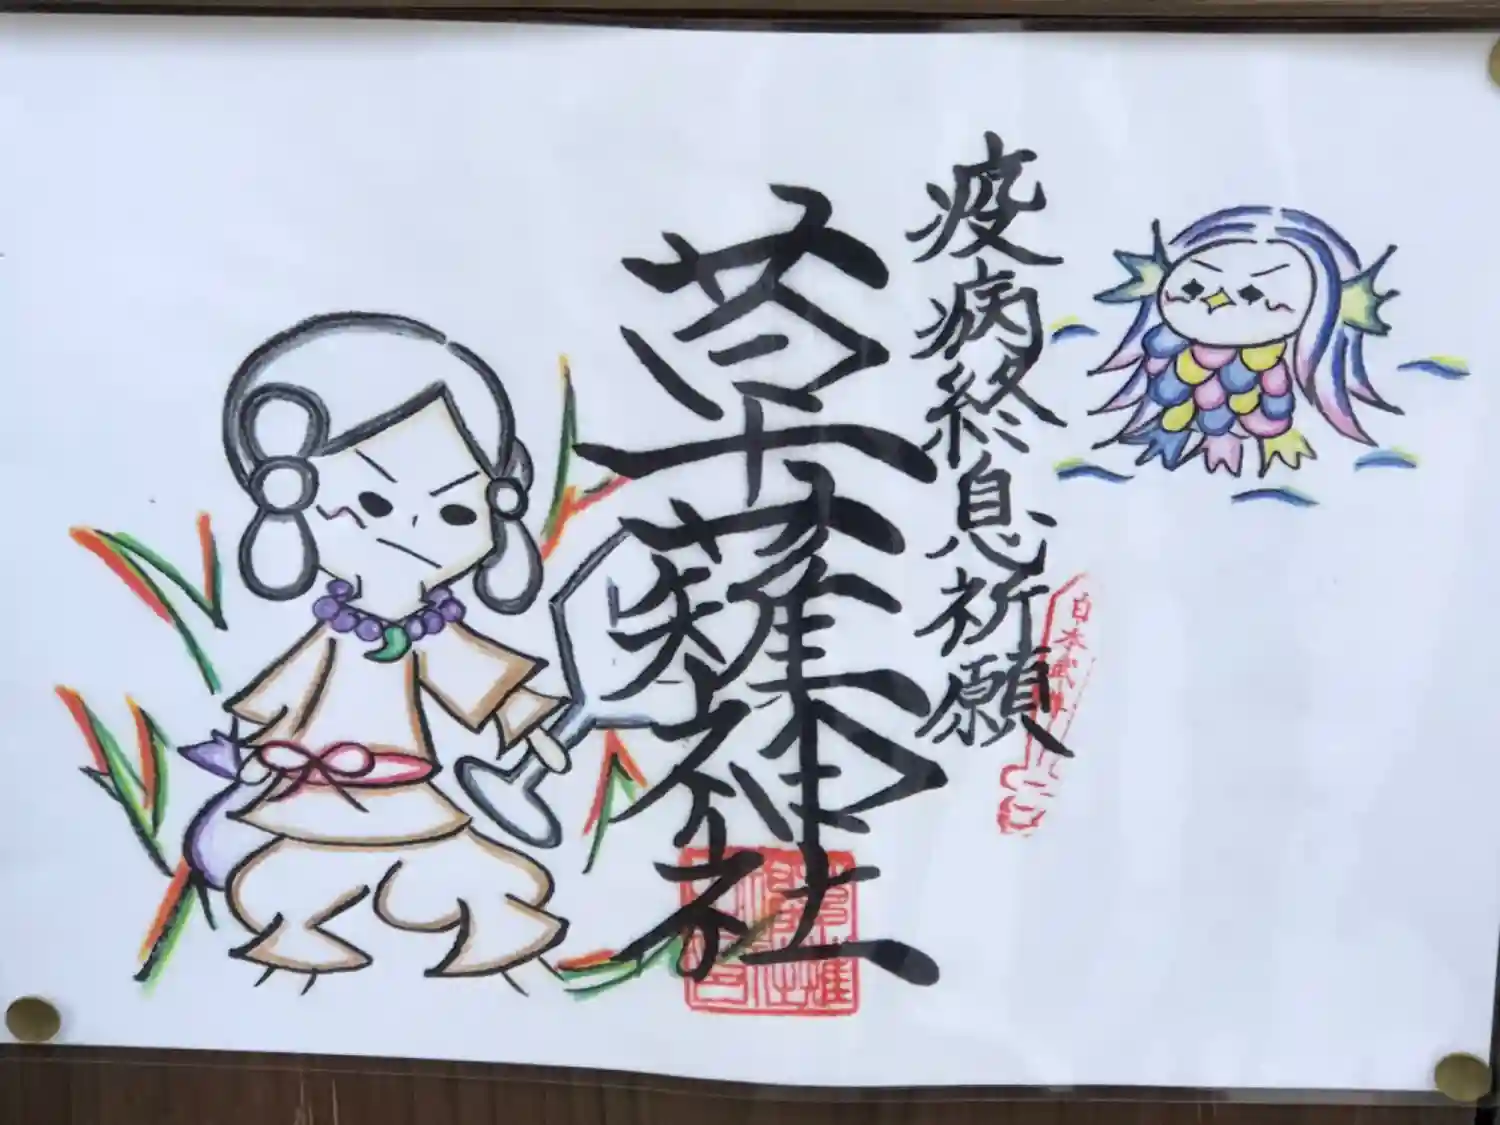 疫病終息祈願
草薙神社
日本武尊